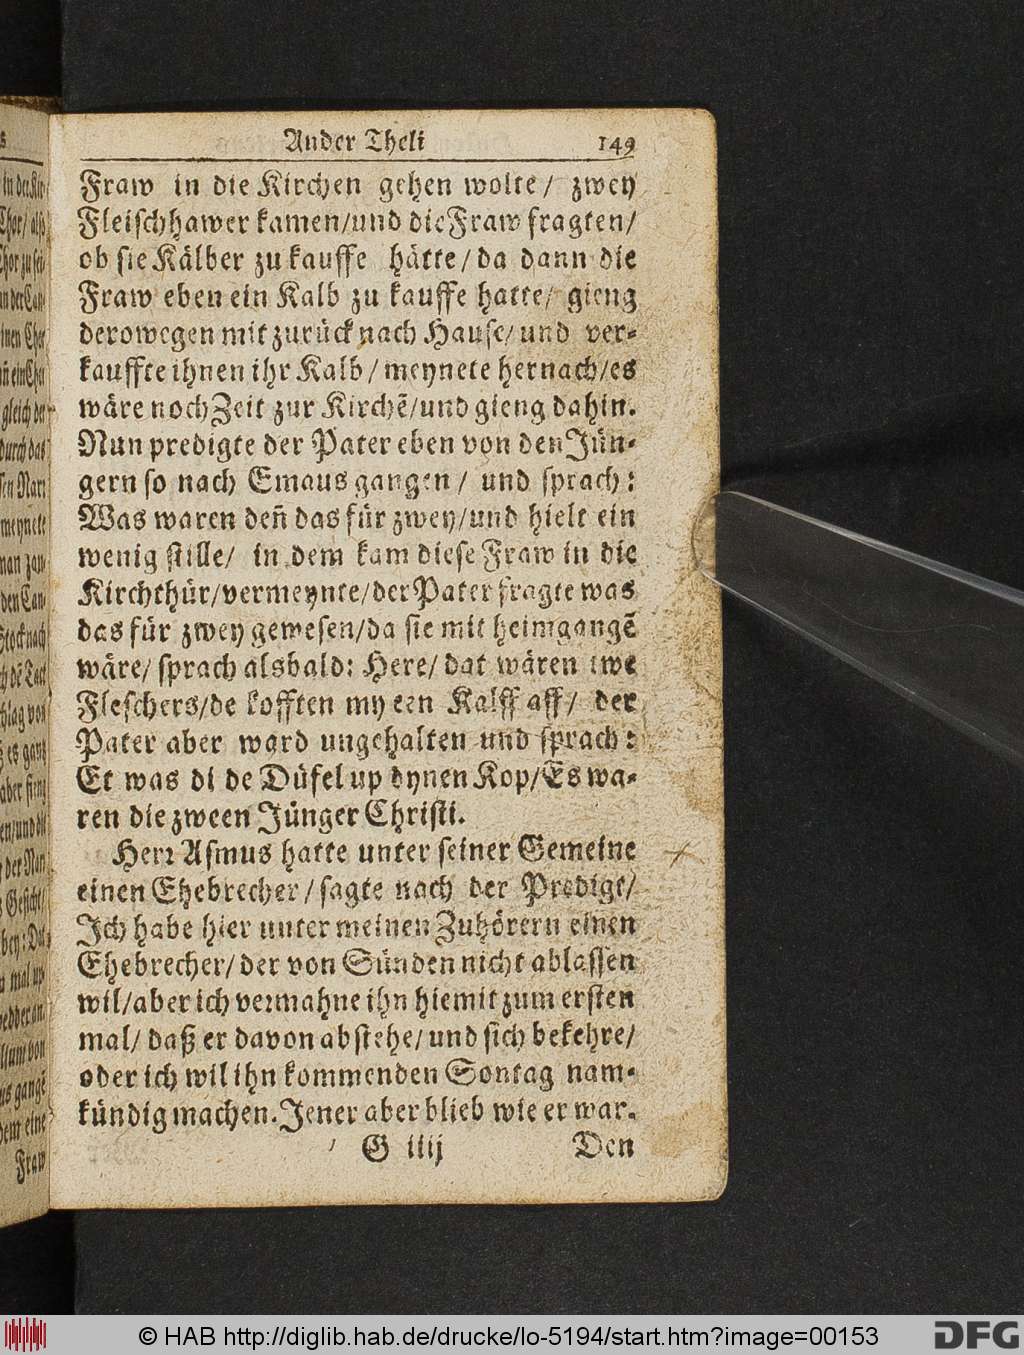 Ander Theli 149
Fraw in die Kirchen gehen wolte/ zwey
Fleischhawer kamen/und die Fraw fragten/
ob sie Kälber zu kauffe hätte/da dann die
Fraw eben ein Kalb zu kauffe hatte/ gieng
derowegen mit zurück nach Hause/und ver-
kauffte ihnen ihr Kalb/meynete hernach/es
wäre noch Zeit zur Kirchẽ/und gieng dahin.
Nun predigte der Pater eben von den Jün-
gern so nach Emaus gangen/ und sprach:
Was waren deñ das für zwey/und hielt ein
wenig stille/ in dem kam diese Fraw in die
Kirchthür/vermeynte/der Pater fragte was
das für zwey gewesen/da sie mit heimgangẽ
wäre/ sprach alsbald: Here/ dat wären twe
Fleschers/de kofften my een Kalff aff/ der
Pater aber ward ungehalten und sprach:
Et was di de Düfel up dynen Kop/Es wa-
ren die zween Jünger Christi.
Herr Asmus hatte unter seiner Gemeine
einen Ehebrecher/sagte nach der Predigt/
Ich habe hier unter meinen Zuhörern einen
Ehebrecher/der von Sünden nicht ablassen
wil/aber ich vermahne ihn hiemit zum ersten
mal/ daß er davon abstehe/und sich bekehre/
oder ich wil ihn kommenden Sontag nam-
kündig machen. Jener aber blieb wie er war.
G iiij Den
in der Kir-
Thor/ also
Chor zu sei-
an der Can-
inen Chor
gleich der
durch das
meynete
man zan-
den Can-
Stock nach
schlag von
es gantz
aber fieng
der Nar
Gesicht/
mal up
von
dem eine
Fraw
© HAB http://diglib.hab.de/drucke/lo-5194/start.htm?image=00153
DFG